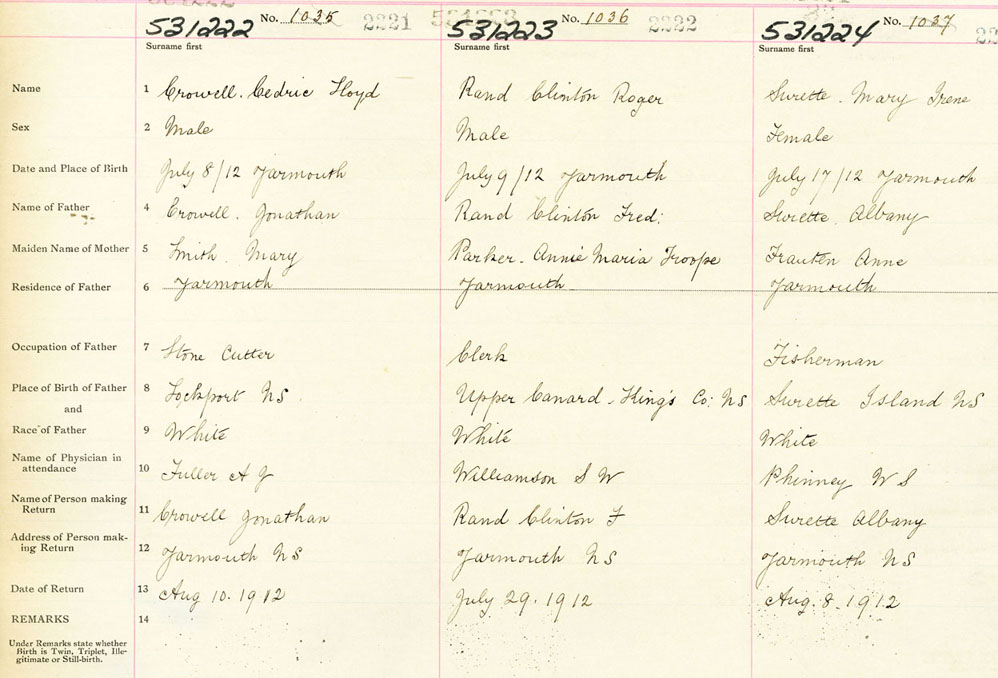 No. 1035 2221 No. 1036 2222 No. 1037
531222 531223 531224
Surname first Surname first Surname first
Name 1 Crowell. Cedric Floyd Rand Clinton Roger Surette. Mary Irene
Sex 2 Male Male Female
Date and Place of Birth 3 July 8/12 Yarmouth July 9/12 Yarmouth July 17/12 Yarmouth
Name of Father 4 Crowell. Jonathan Rand Clinton Fred: Surette. Albany
Maiden Name of Mother 5 Smith. Mary Parker. Annie Maria Troope Frauten Anne
Residence of Father 6 Yarmouth Yarmouth Yarmouth
Occupation of Father 7 Stone Cutter Clerk Fisherman
Place of Birth of Father 8 Lockport NS. Upper Canard - King's Co: NS Surette Island NS
and
Race of Father 9 White White White
Name of Physician in
attendance 10 Fuller A G Williamson S W Phinney W S
Name of Person making
Return 11 Crowell Jonathan Rand Clinton F Surette Albany
Address of Person mak-
ing Return 12 Yarmouth NS Yarmouth NS Yarmouth NS
Date of Return 13 Aug 10. 1912 July 29. 1912 Aug. 8. 1912
REMARKS 14
Under Remarks state whether
Birth is Twin, Triplet, Ille-
gitimate or Still-birth.